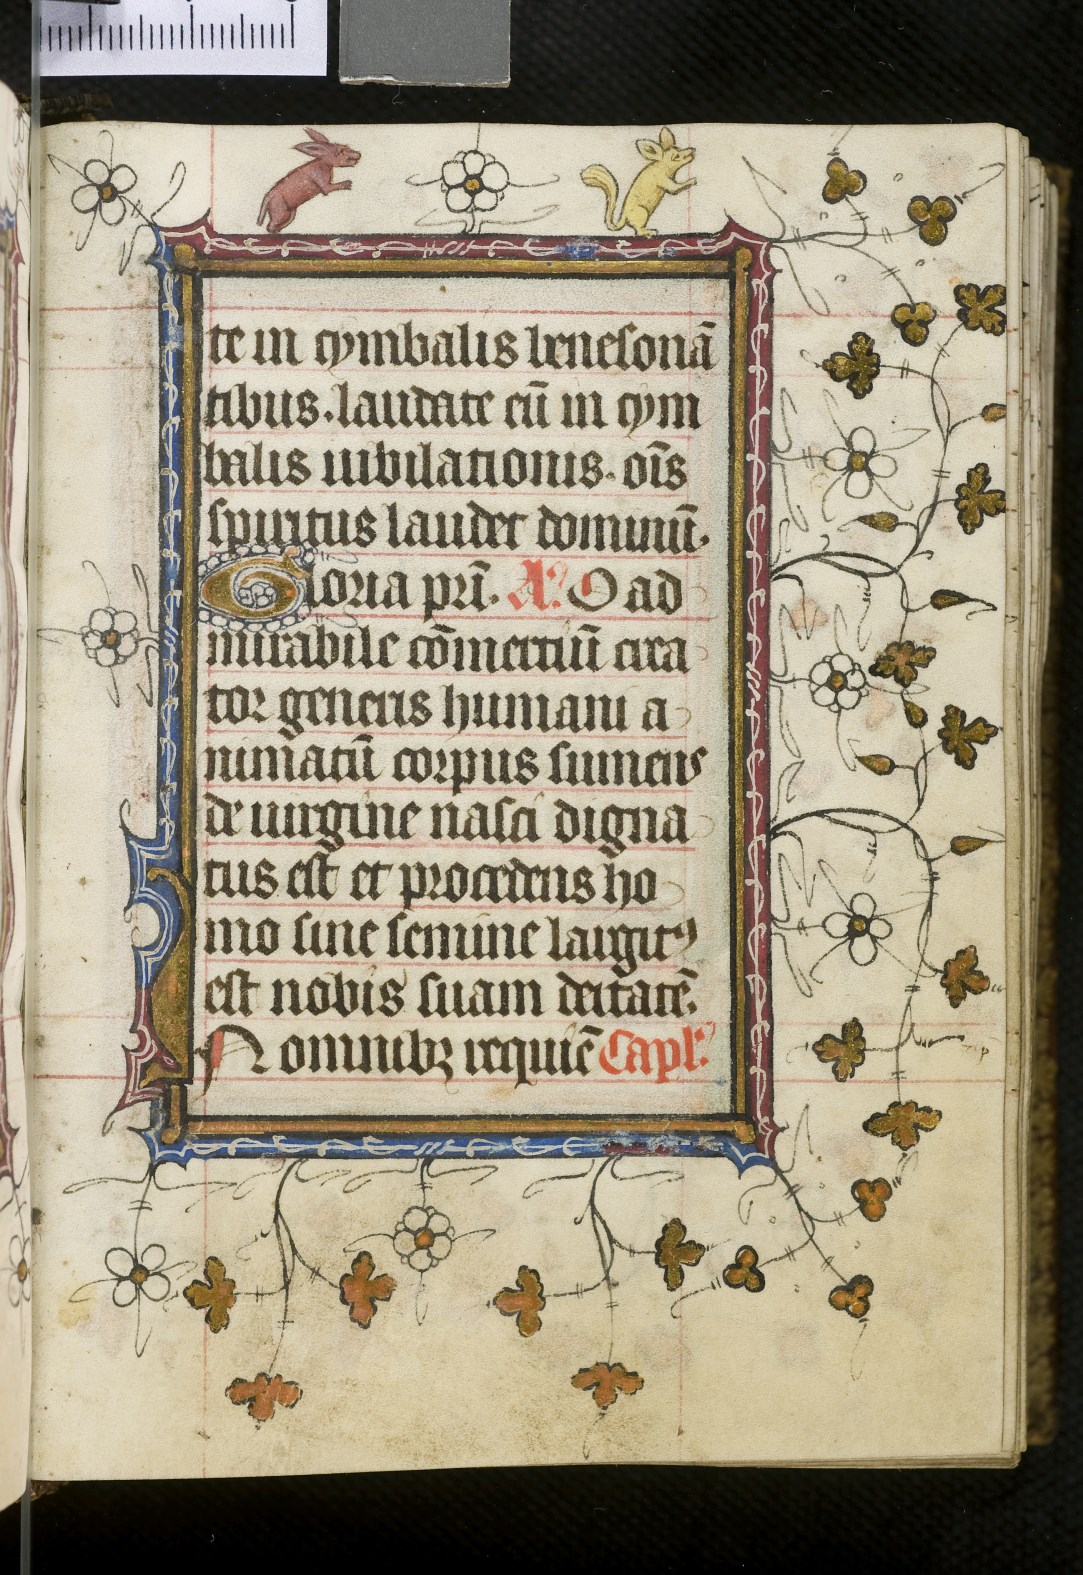 te in cymbalis benesonã
tibus. laudate eũ in cym
balis iubilationis. oĩs
spiritus laudet dominũ.
Gloria pr̃i. A᷒. O ad
mirabile cõmertiũ crea
tor generis humani a
nimatũ corpus sumens
de uirgine nasci digna
tus est et procedens ho
mo sine semine largitꝰ
est nobis suam deitatẽ.
N omnibꝫ requiẽ Capl᷒.